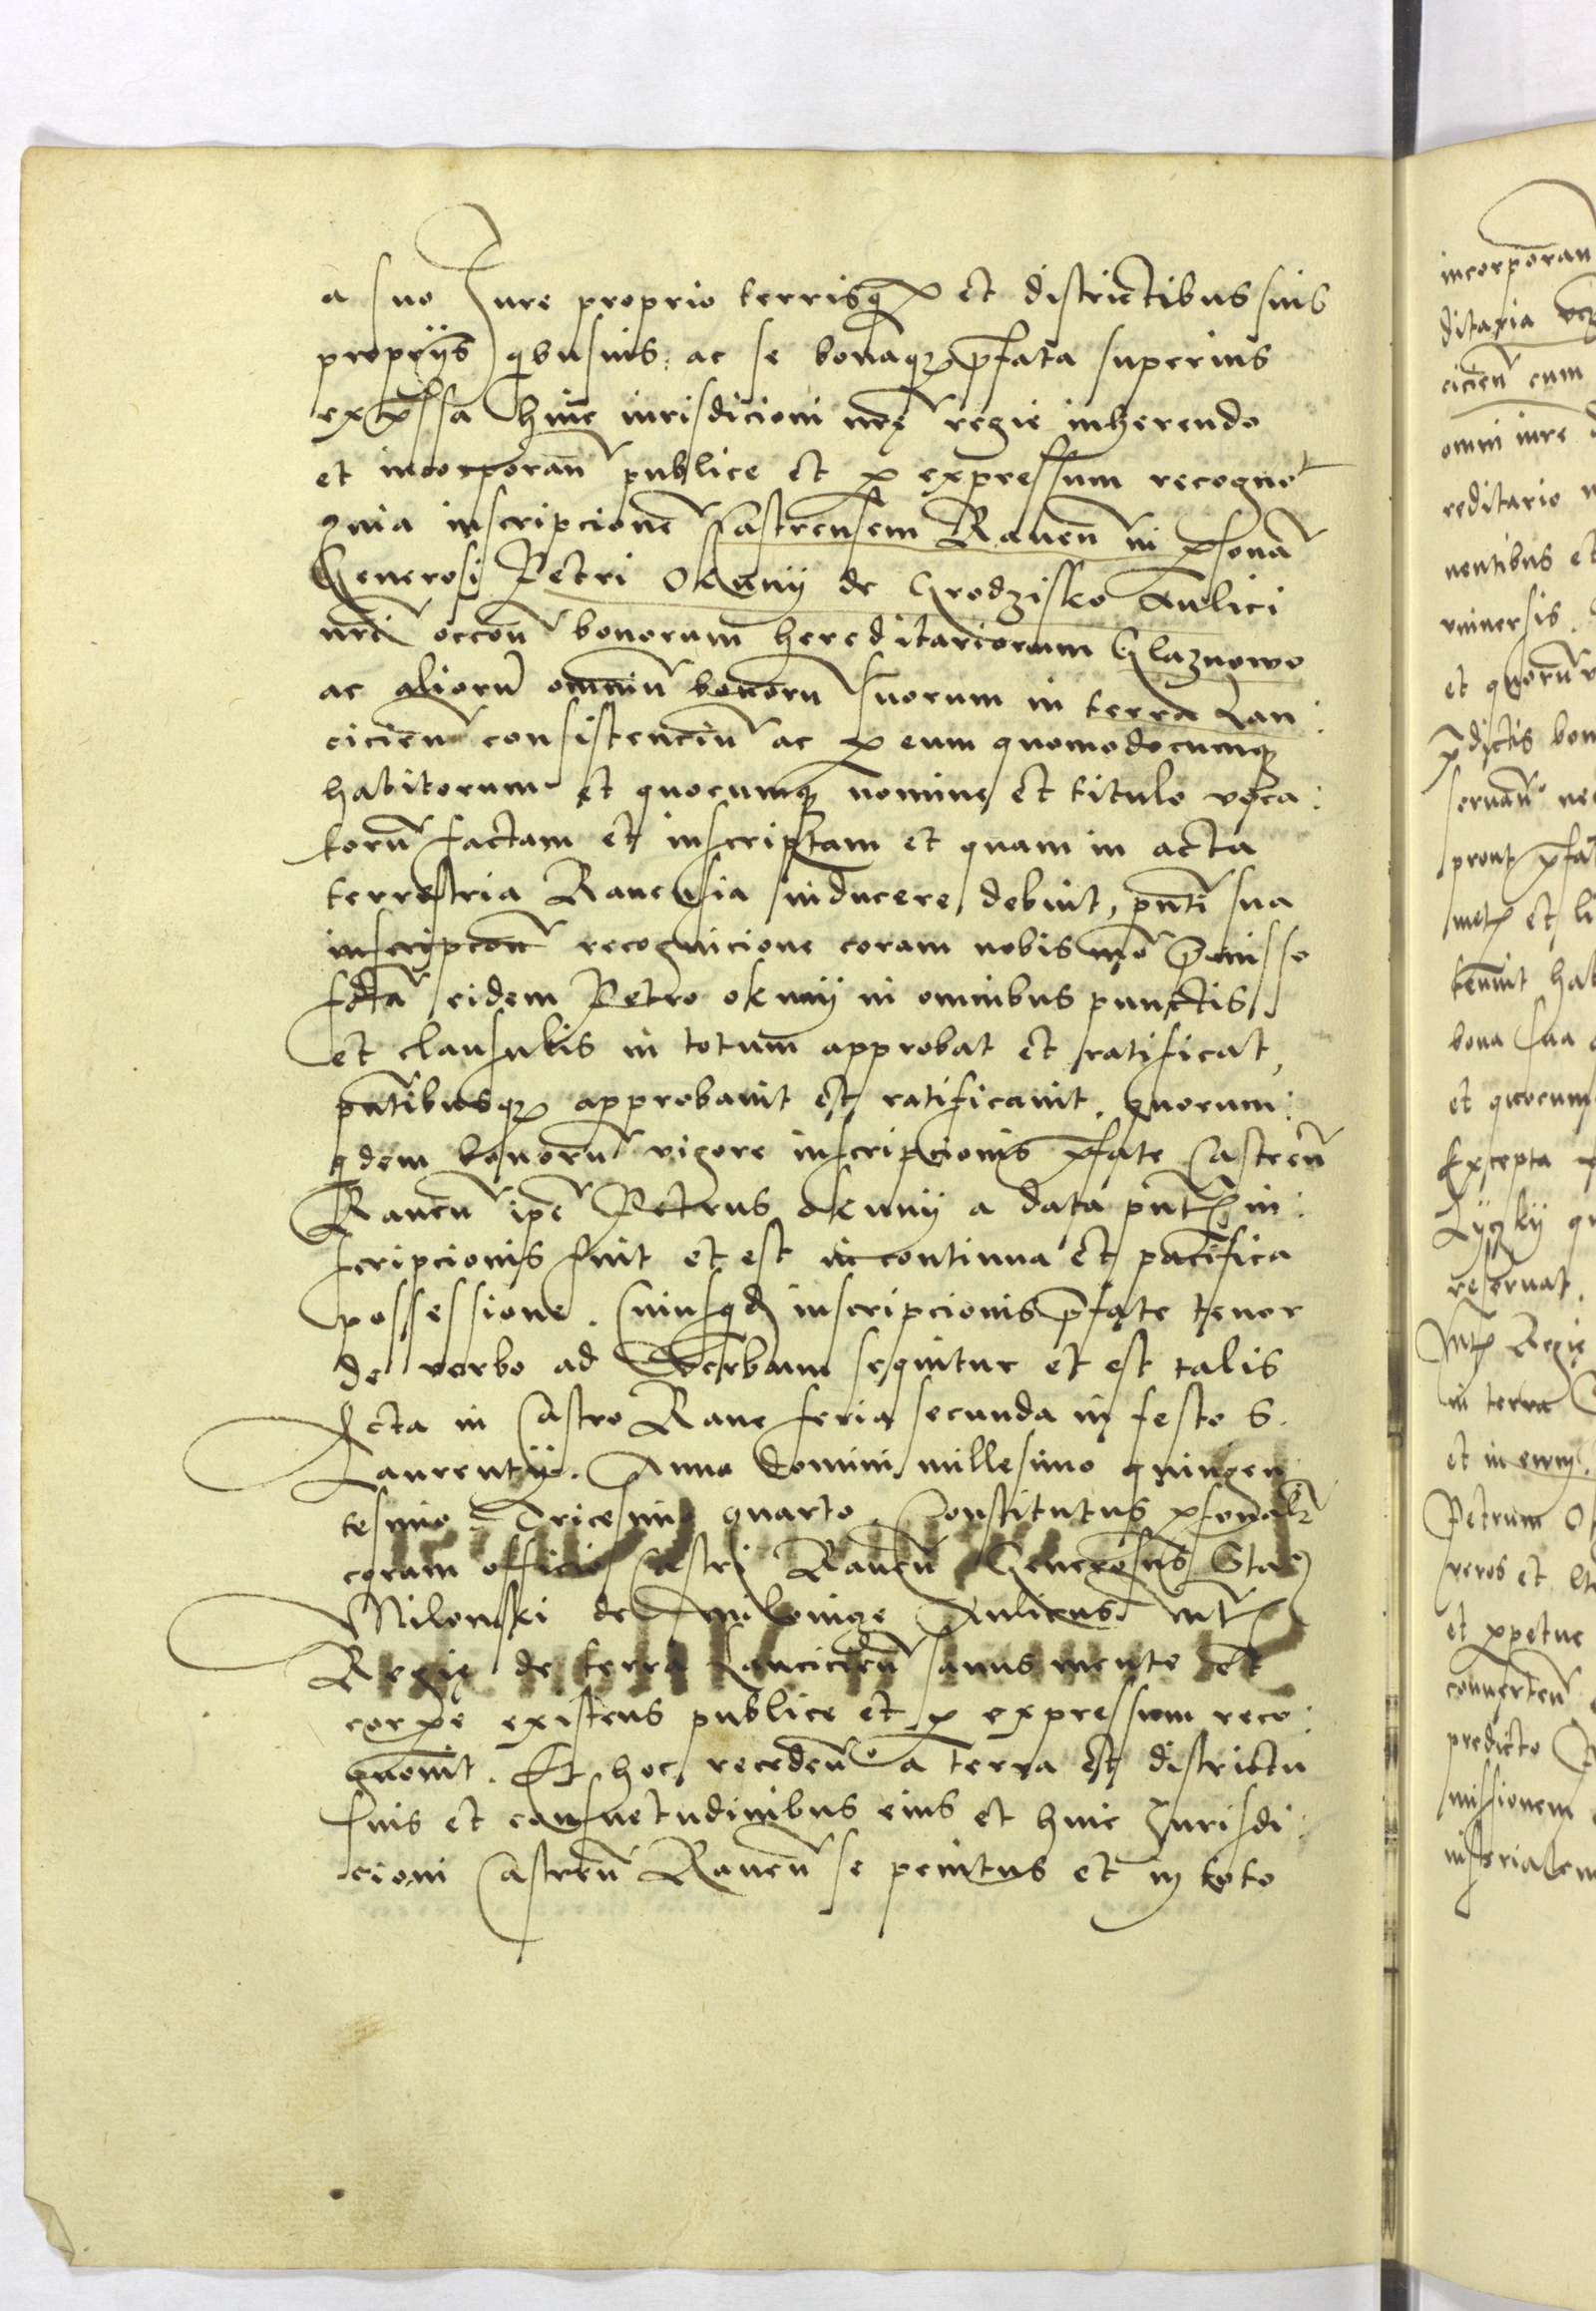 a suo Jure proprio terrisq et districtibus suis
proprijs qbusuis: ac se bonaq pfata superius
expssa huic iurisdicioni nrę regie inherendo
et incorporan publice et p expressum recognot
Quia inscripcione Castrensem Rauen in psona
Generosi Petri Okuny de Grodzisko Aulici
nri occon bonorum hereditariorum Glaznowo
ac alioru omniu bonoru suorum in terra Lan:
cicien consistenciu ac p eum quomodocumq
habitorum et quocumq nomine et titulo voca:
toru factam et inscriptam et quam in acta
terrestria Rauensia inducere debuit, pnti sua
inscripcon recognicione coram nobis mo pmisso
fcta eidem Petro okuny in omnibus punctis
et clausulis in totum approbat et ratificat,
pntibusq approbauit et ratificauit. Quorum:
qdem bonoru vigore inscripcionis pfate Castren
Rauen ipe Petrus okuny a data pnt in:
scripcionis fuit et est in continua et pacifica
possessione. Cuiusqd inscripcionis pfate tenor
de verbo ad Verbum sequitur et est talis
Acta in Castro Raue feria secunda in festo S.
Laurentij. Anno domini millesimo quingen
tesimo Tricesimo quarto. Constitutus psonalr
coram officio Castri Rauen Generosus Sta
Milonski de Aulicus Mt
Regię de terra Lancicien sanus mente et
corpe existens publice et p expressum reco:
gnouit. Et hoc recedendo a terra et districtu
suis et consuetudinibus eius et huic Jurisdi:
cioni Castren Rauen se penitus et in toto
incorporan
ditaria
cicien cum
omni iure
reditario
nentibus et
vniuersis.
et quoru
pdictis bon
seruan ne
prout pfat
met et li
tenuit hab
bona sua
et quocum
Excepta
reseruat.
Mt Regie
in terra
et in eum
Petrum O
et ppetue
conuerten
predicto
missionem